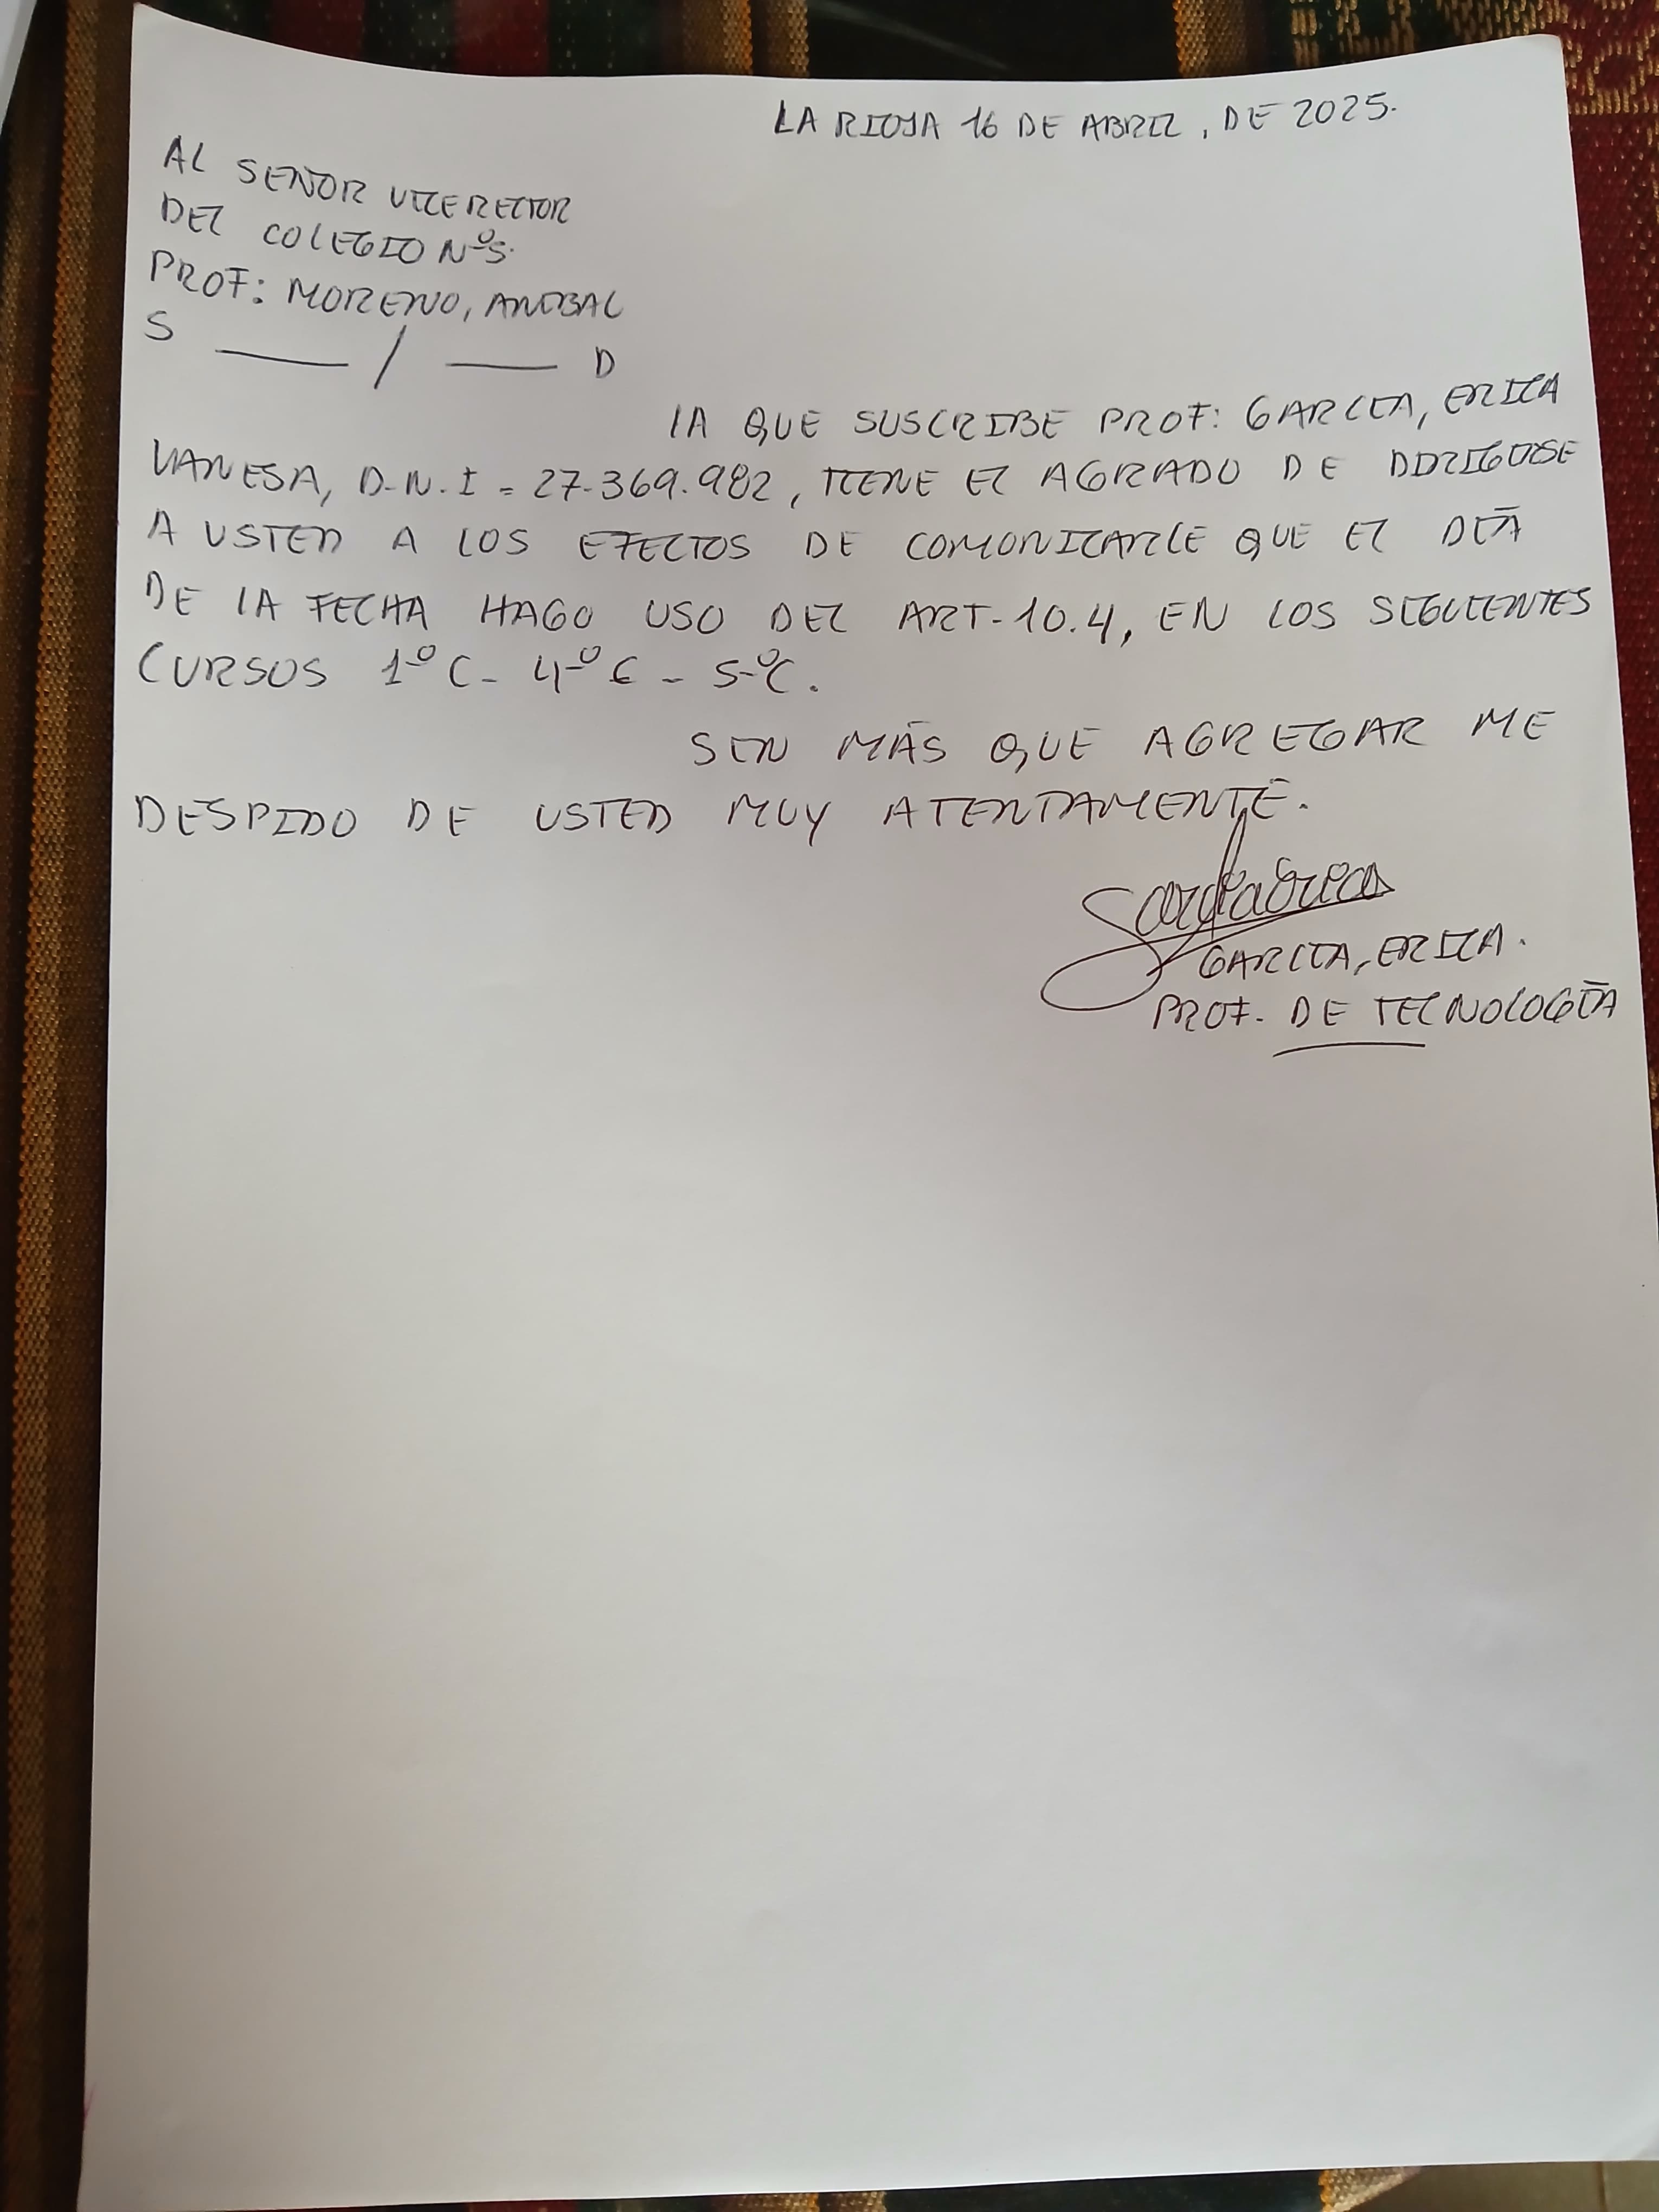 LA RIOJA 16 DE ABRIL, DE 2025.
AL SEÑOR VICERECTOR
DEL COLEGIO Nº5.
PROF: MORENO, ANIBAL
S ___ / ___ D
LA QUE SUSCRIBE PROF: GARCIA, ERICA
VANESA, D.N.I = 27.369.982, TIENE EL AGRADO DE DIRIGIRSE
A USTED A LOS EFECTOS DE COMUNICARLE QUE EL DÍA
DE LA FECHA HAGO USO DEL ART-10.4, EN LOS SIGUIENTES
CURSOS 1º C - 4º C - 5º C.
SIN MÁS QUE AGREGAR ME
DESPIDO DE USTED MUY ATENTAMENTE.
GARCIA, ERICA.
PROF. DE TECNOLOGÍA